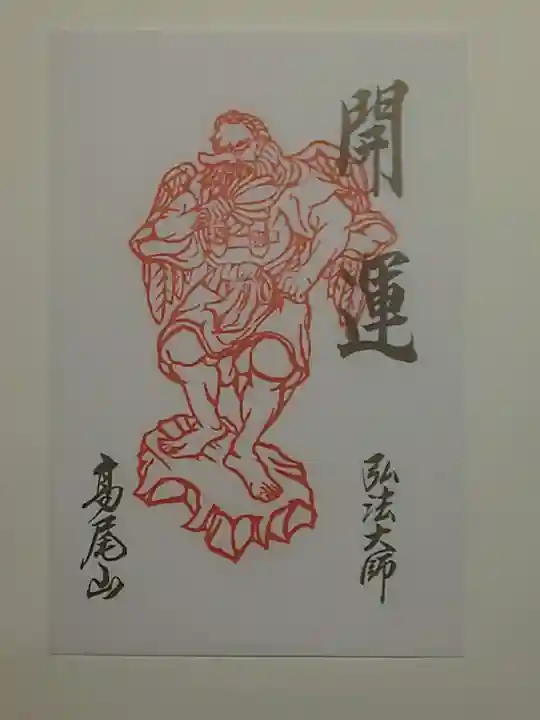 開運
弘法大師
髙尾山